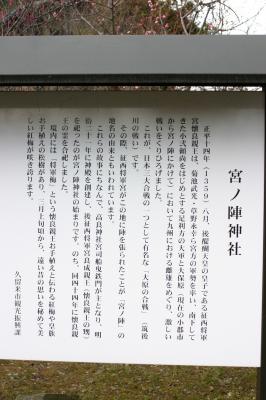 宮ノ陣神社
正平十四年（１３５９）八月、後醍醐天皇の皇子である征西将軍
宮懐良親王は、菊池武光・草野永幸ら宮方の軍勢を率い、南下して
きた小弐頼尚をはじめとする足利方の大軍と大保原（現在の小郡市
から宮ノ陣にかけて）において九州における雌雄をめぐり、激しい
戦いをくりひろげました。
これが、日本三大合戦の一つとして有名な「大原の合戦」（筑後
川の戦い）です。
その際、征西将軍宮がこの地に陣を張られたことが「宮ノ陣」の
地名の由来ともいわれています。
これらの故事にちなんで、高良神社宮司船曳鉄門が主となり、明
治二十一年に神殿を創建し、後征西将軍宮良成親王（懐良親王の甥）
を祀ったのが宮ノ陣神社の始まりです。のち、同四十四年に懐良親
王の霊を合祀しました。
境内には「将軍梅」という懐良親王お手植えと伝わる紅梅や皇族
お手植えの松樹があり、三月上旬頃から、遠い昔の思いを秘めて美
しい紅梅が咲き誇ります。
久留米市観光振興課